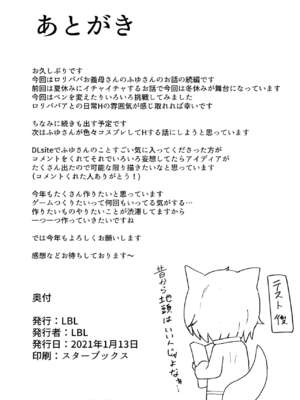 あとがき
お久しぶりです
今回はロリババお義母さんのふゆさんのお話の続編です
前回は夏休みにイチャイチャするお話で今回は冬休みが舞台になっています
今回はペンを変えたりいろいろ挑戦してみました
ロリババアとの日常Hの雰囲気が感じ取れれば幸いです
ちなみに続きも出す予定です
次はふゆさんが色々コスプレしてHする話にしようと思っています
DLsiteでふゆさんのことすごい気に入ってくださった方が
コメントをくれてそれでいろいろ妄想してたらアイディアが
たくさん出たので可能な限り描きたいなと思っています
(コメントくれた人ありがとう!)
今年もたくさん作りたいと思っています
ゲームつくりたいって何回もいってる気がする…
作りたいものやりたいことが渋滞してますから
一つ一つ作っていきたいですね
では今年もよろしくお願いします
感想などお待ちしております〜
奥付
発行：LBL
発行者：LBL
発行日：2021年1月13日
印刷：スターブックス
テスト後
昔から地頭はいいんじゃよなぁ…